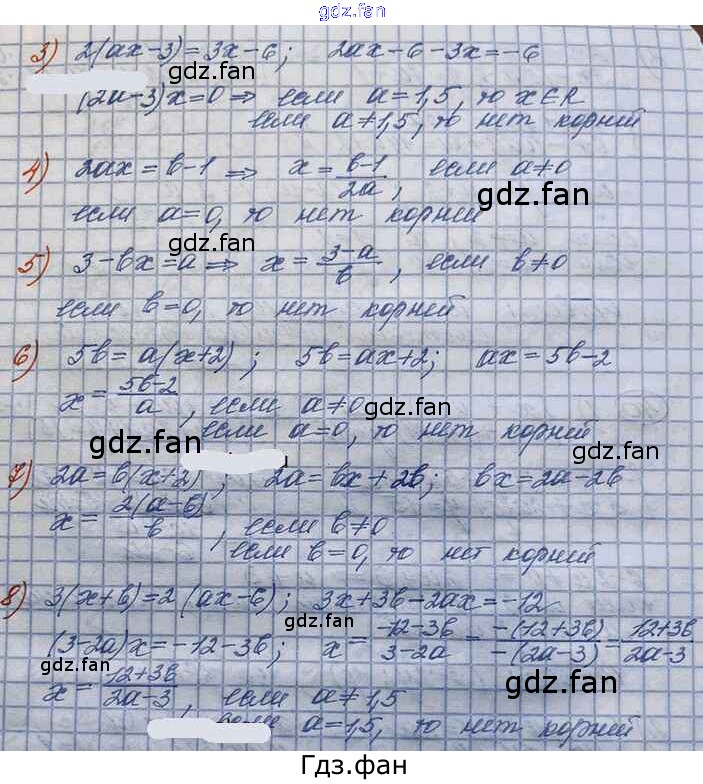 gdz.fan
3) 2(ax-3)=3x-6; 2ax-6-3x=-6
gdz.fan
gdz.fan
(2a-3)x=0 ⇒ если a=1,5, то x∈R
если a≠1,5, то нет корней
4) 2ax=b-1 ⇒ x=\frac{b-1}{2a}, если a≠0
gdz.fan
если a=0, то нет корней
gdz.fan
5) 3-bx=a ⇒ x=\frac{3-a}{b}, если b≠0
если b=0, то нет корней
6) 5b=a(x+2); 5b=ax+2; ax=5b-2
x=\frac{5b-2}{a}, если a≠0
gdz.fan
если a=0, то нет корней
gdz.fan
gdz.fan
7) 2a=b(x+2); 2a=bx+2b; bx=2a-2b
x=\frac{2(a-b)}{b}, если b≠0
gdz.fan
если b=0, то нет корней
8) 3(x+b)=2(ax-6); 3x+3b-2ax=-12
gdz.fan
(3-2a)x=-12-3b; x=\frac{-12-3b}{3-2a}=\frac{-(12+3b)}{-(2a-3)}=\frac{12+3b}{2a-3}
gdz.fan
x=\frac{12+3b}{2a-3}, если a≠1,5
gdz.fan
если a=1,5, то нет корней
Гдз.фан